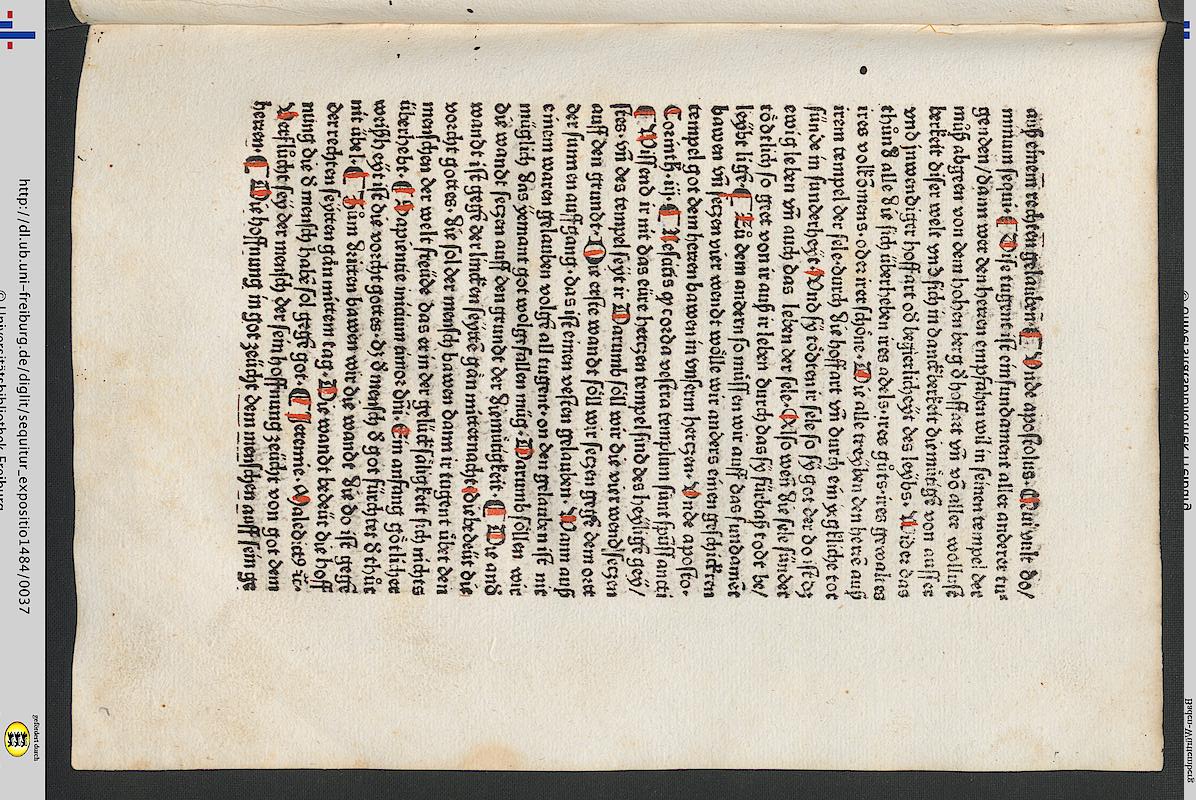 auß einem rechten gelauben. Unde apostolus. Qui vult do/
minum sequi. Dise tugent ist ein fundament aller anderer tu-
genden / dann wer den herren empfahen wil in seinen tempel der
můß abgeen von dem hohen berg d hoffart vñ võ aller wollust
berkeit diser welt vnd sich in danckberkeit diemütige von ausser
vnd inwendiger hoffart od begirlicheyt des leybs. Wider das
thůnd alle die sich überheben ires adels. ires gůts. ires gewaltes
ires volkõmens. oder irer schöne. Die alle treyben den herrẽ auß
irem tempel der sele. durch die hoffart vñ durch ein ygkliche tot
sünde in sunderheyt. Und sy tödten ir sele so sy got der do ist dz
ewig leben vñ auch das leben der sele. Also wen die sele sünder
tödtlich so geet von ir auß ir leben durch das sy fürbaß todt be/
leybt lige. Zů dem andern so müssen wir auff das fundamẽt
bawen vñ seczen vier wendt wölle wir anders einen geschickten
tempel got dem herren bawen in vnserm herczen. Unde aposto.
Corinth. iij. Nescitis qz corda vestra templum sunt spũssancti
Wissend ir nit das eüre herczen tempel sind des heyligẽ gey/
stes. vñ des tempel seyt ir. Darumb söll wir die vier wend seczen
auff den grundt. Die erste wandt söll wir seczen gegẽ dem ort
der sunnen auffgang. das ist einen vesten gelauben. Wann auß
einem waren gelauben volgẽ all tugent. on den gelauben ist nit
müglich das yemant got wolgefallen müg. Darumb söllen wir
die wandt seczen auff den grundt der diemütigkeit. Die and
wandt ist gegẽ der lincken seytẽ geen mitternacht. die bedeüt die
vorcht gottes. die sol der mensch bawen dann ir tugent übt den
menschen der welt freüde das er in der glückseligkeit sich nichts
überhebt. Sapientie inicium timor dñi. Ein anfang götlicher
weißheyt ist die vorcht gottes. dz d mensch d got fürchtet d thůt
nit übel. Zům dritten bawen wir die wandt die do ist gegẽ
der rechten seyten geen mittem tag. Die wandt bedeüt die hoff
nung die d mensch habẽ sol gegẽ got. Jeremie. Maledict9 ⁊c.
Verflücht sey der mensch der sein hoffnung zeücht von got dem
herren. Die hoffnung in got zeücht dem menschen auff sein ge
http://dl.ub.uni-freiburg.de/diglit/sequitur_expositio1484/0037
© Universitätsbibliothek Freiburg
gefördert durch